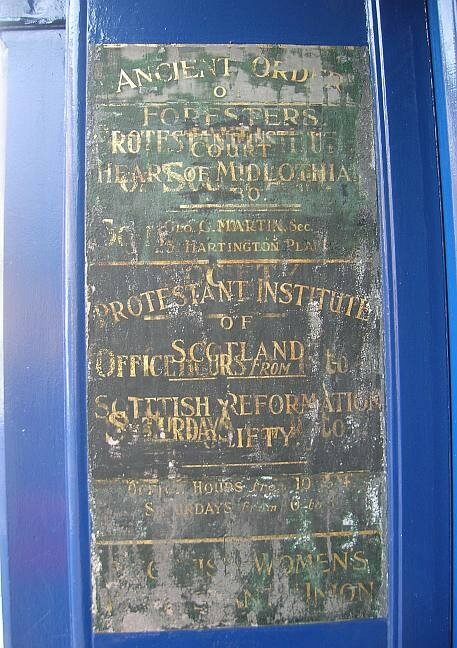 ANCIENT ORDER
O
FORESTERS
PROTESTANT INSTITUTE
COURT
HEART OF MIDLOTHIAN
OF SCOTLAND
GEO. C. MARTIN, SEC.
HARTINGTON PLACE
PROTESTANT INSTITUTE
OF
SCOTLAND
OFFICE HOURS FROM TO
SCOTTISH REFORMATION
SATURDAYS TO
SOCIETY
OFFICE HOURS from 10 to 4
SATURDAYS from 10 to
WOMENS
UNION